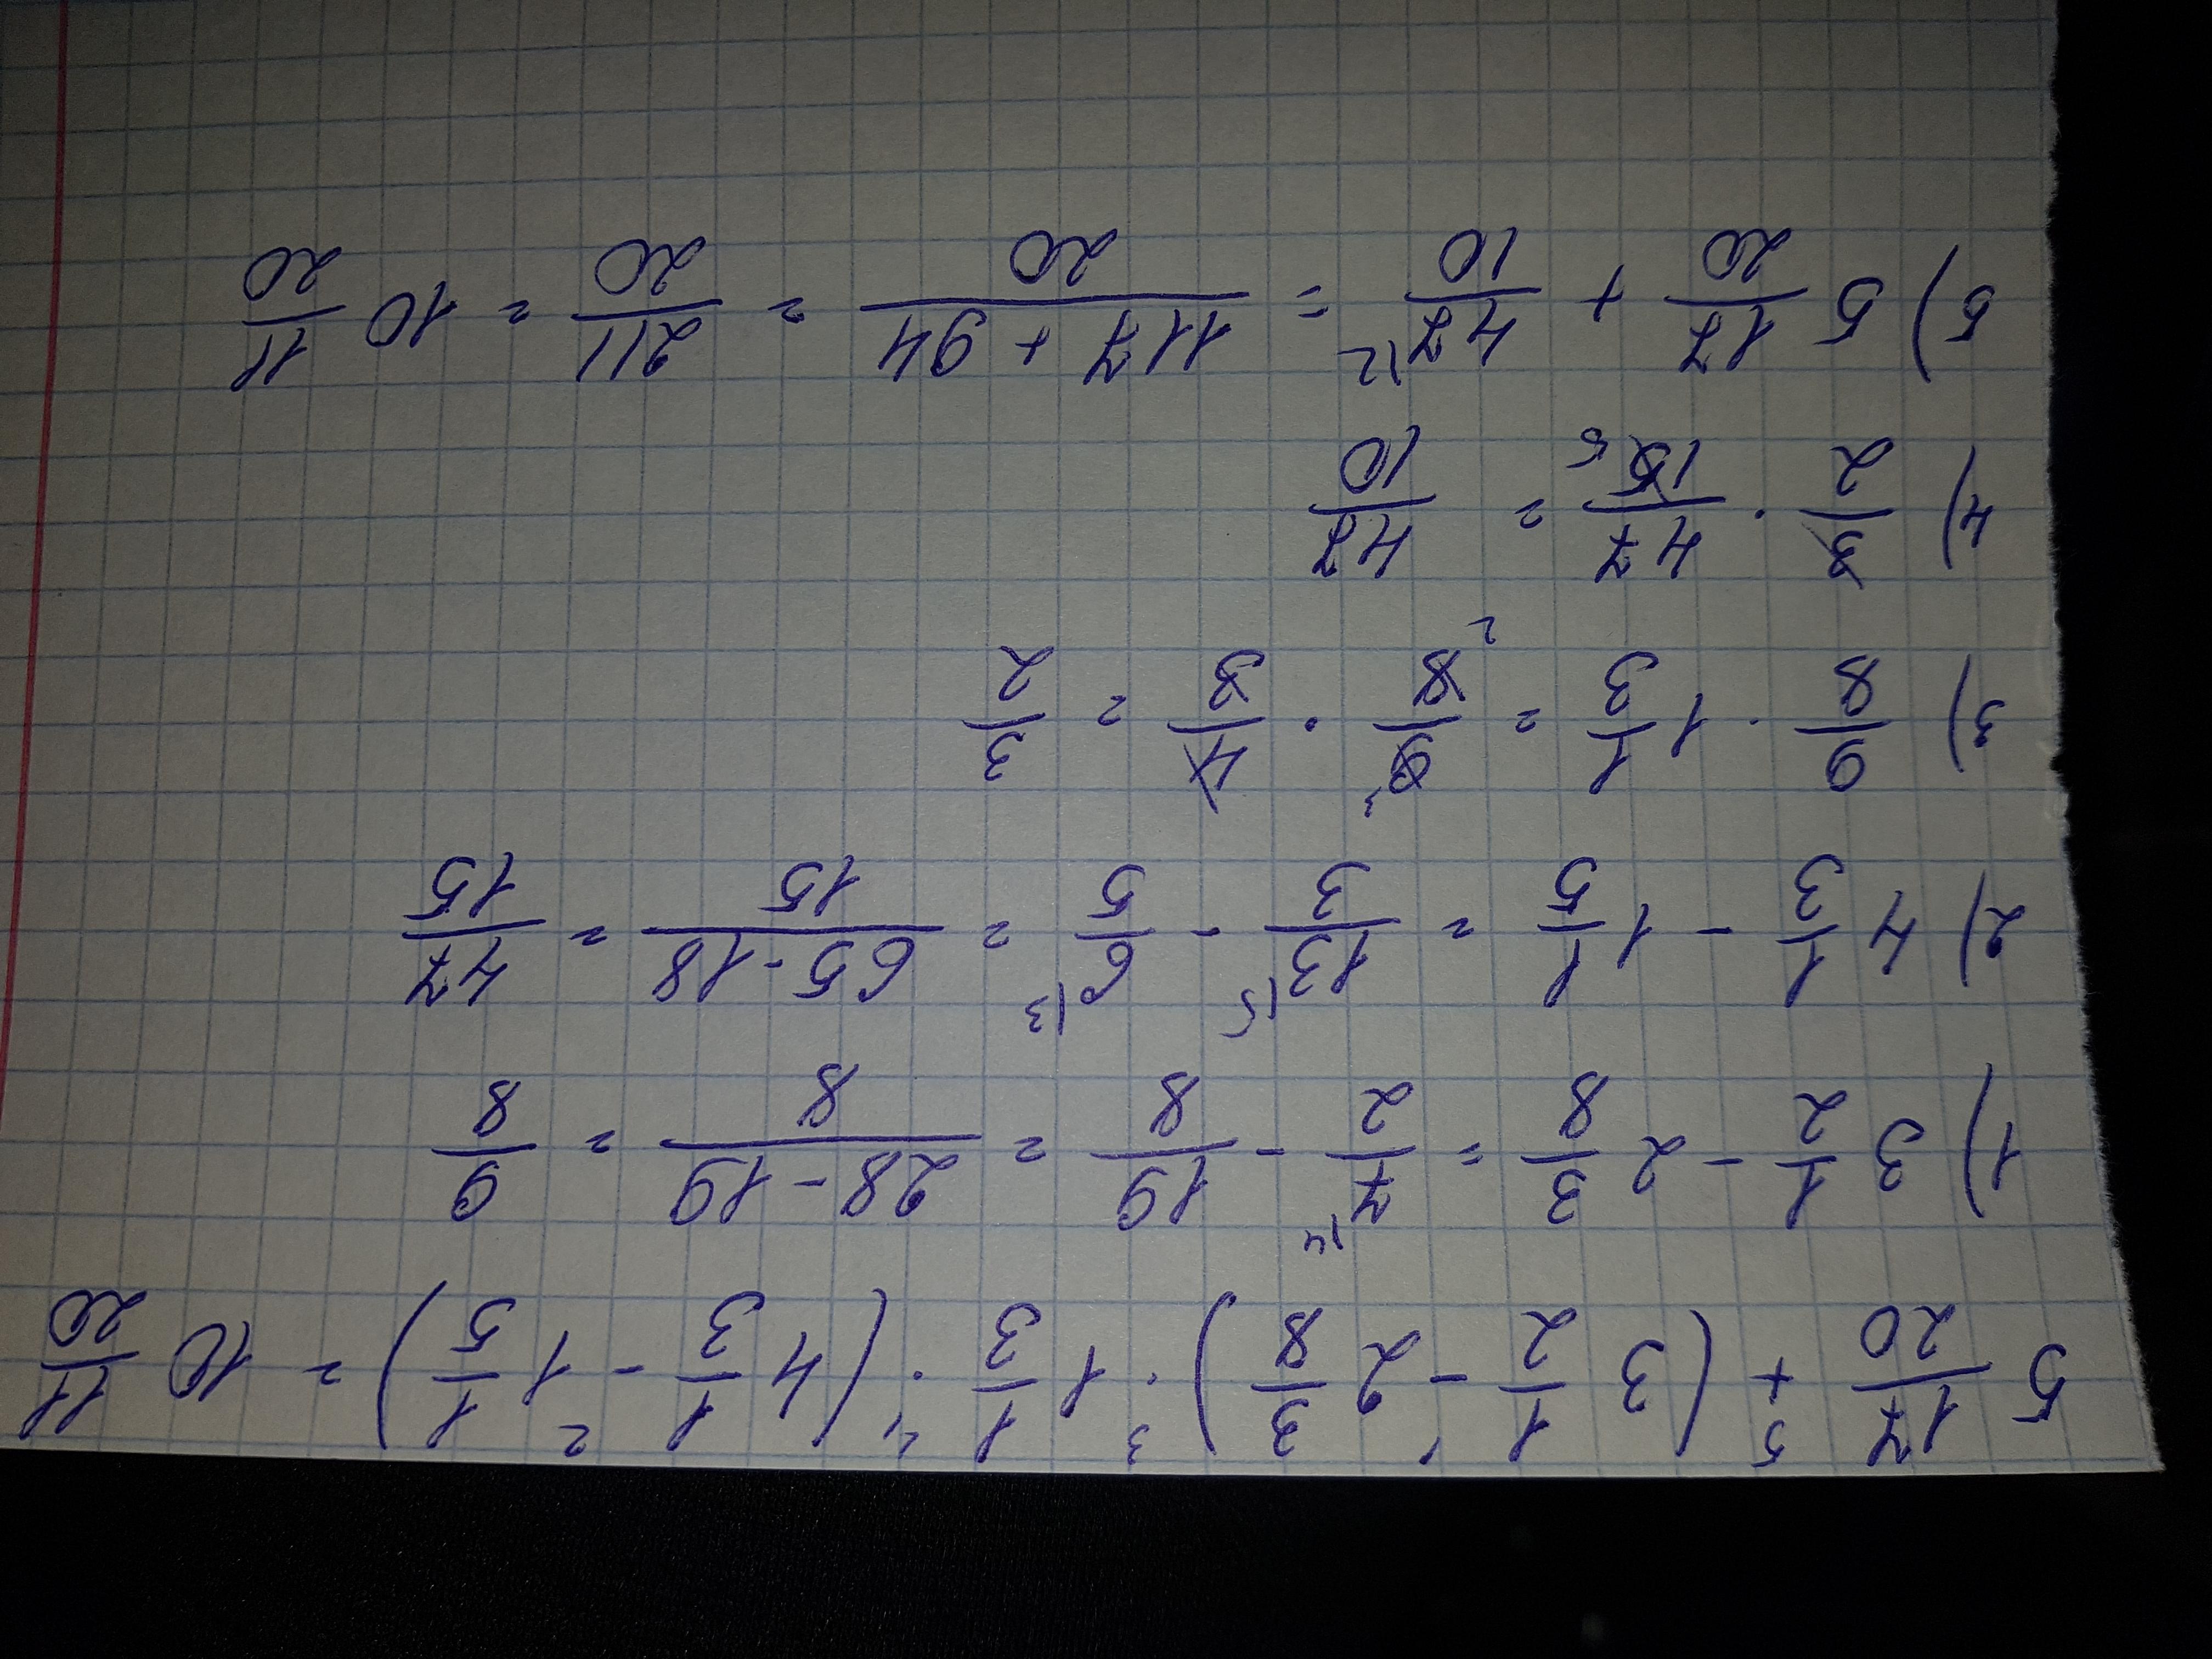 5 17/20 + (3 1/2 - 2 3/8) · 1 1/3 · (4 1/3 - 1 1/5) = 10 11/20
1) 3 1/2 - 2 3/8 = 7/2 - 19/8 = (28 - 19)/8 = 9/8
2) 4 1/3 - 1 1/5 = 13/3 - 6/5 = (65 - 18)/15 = 47/15
3) 9/8 · 1 1/3 = 9/8 · 4/3 = 3/2
4) 3/2 · 47/15 = 47/10
5) 5 17/20 + 47/10 = (117 + 94)/20 = 211/20 = 10 11/20